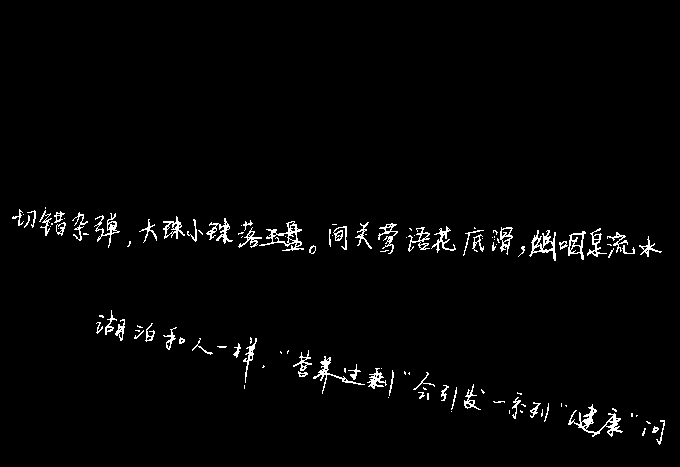 切错杂弹，大珠小珠落玉盘。间关莺语花底滑，幽咽泉流水
湖泊和人一样，“营养过剩”会引发一系列“健康”问